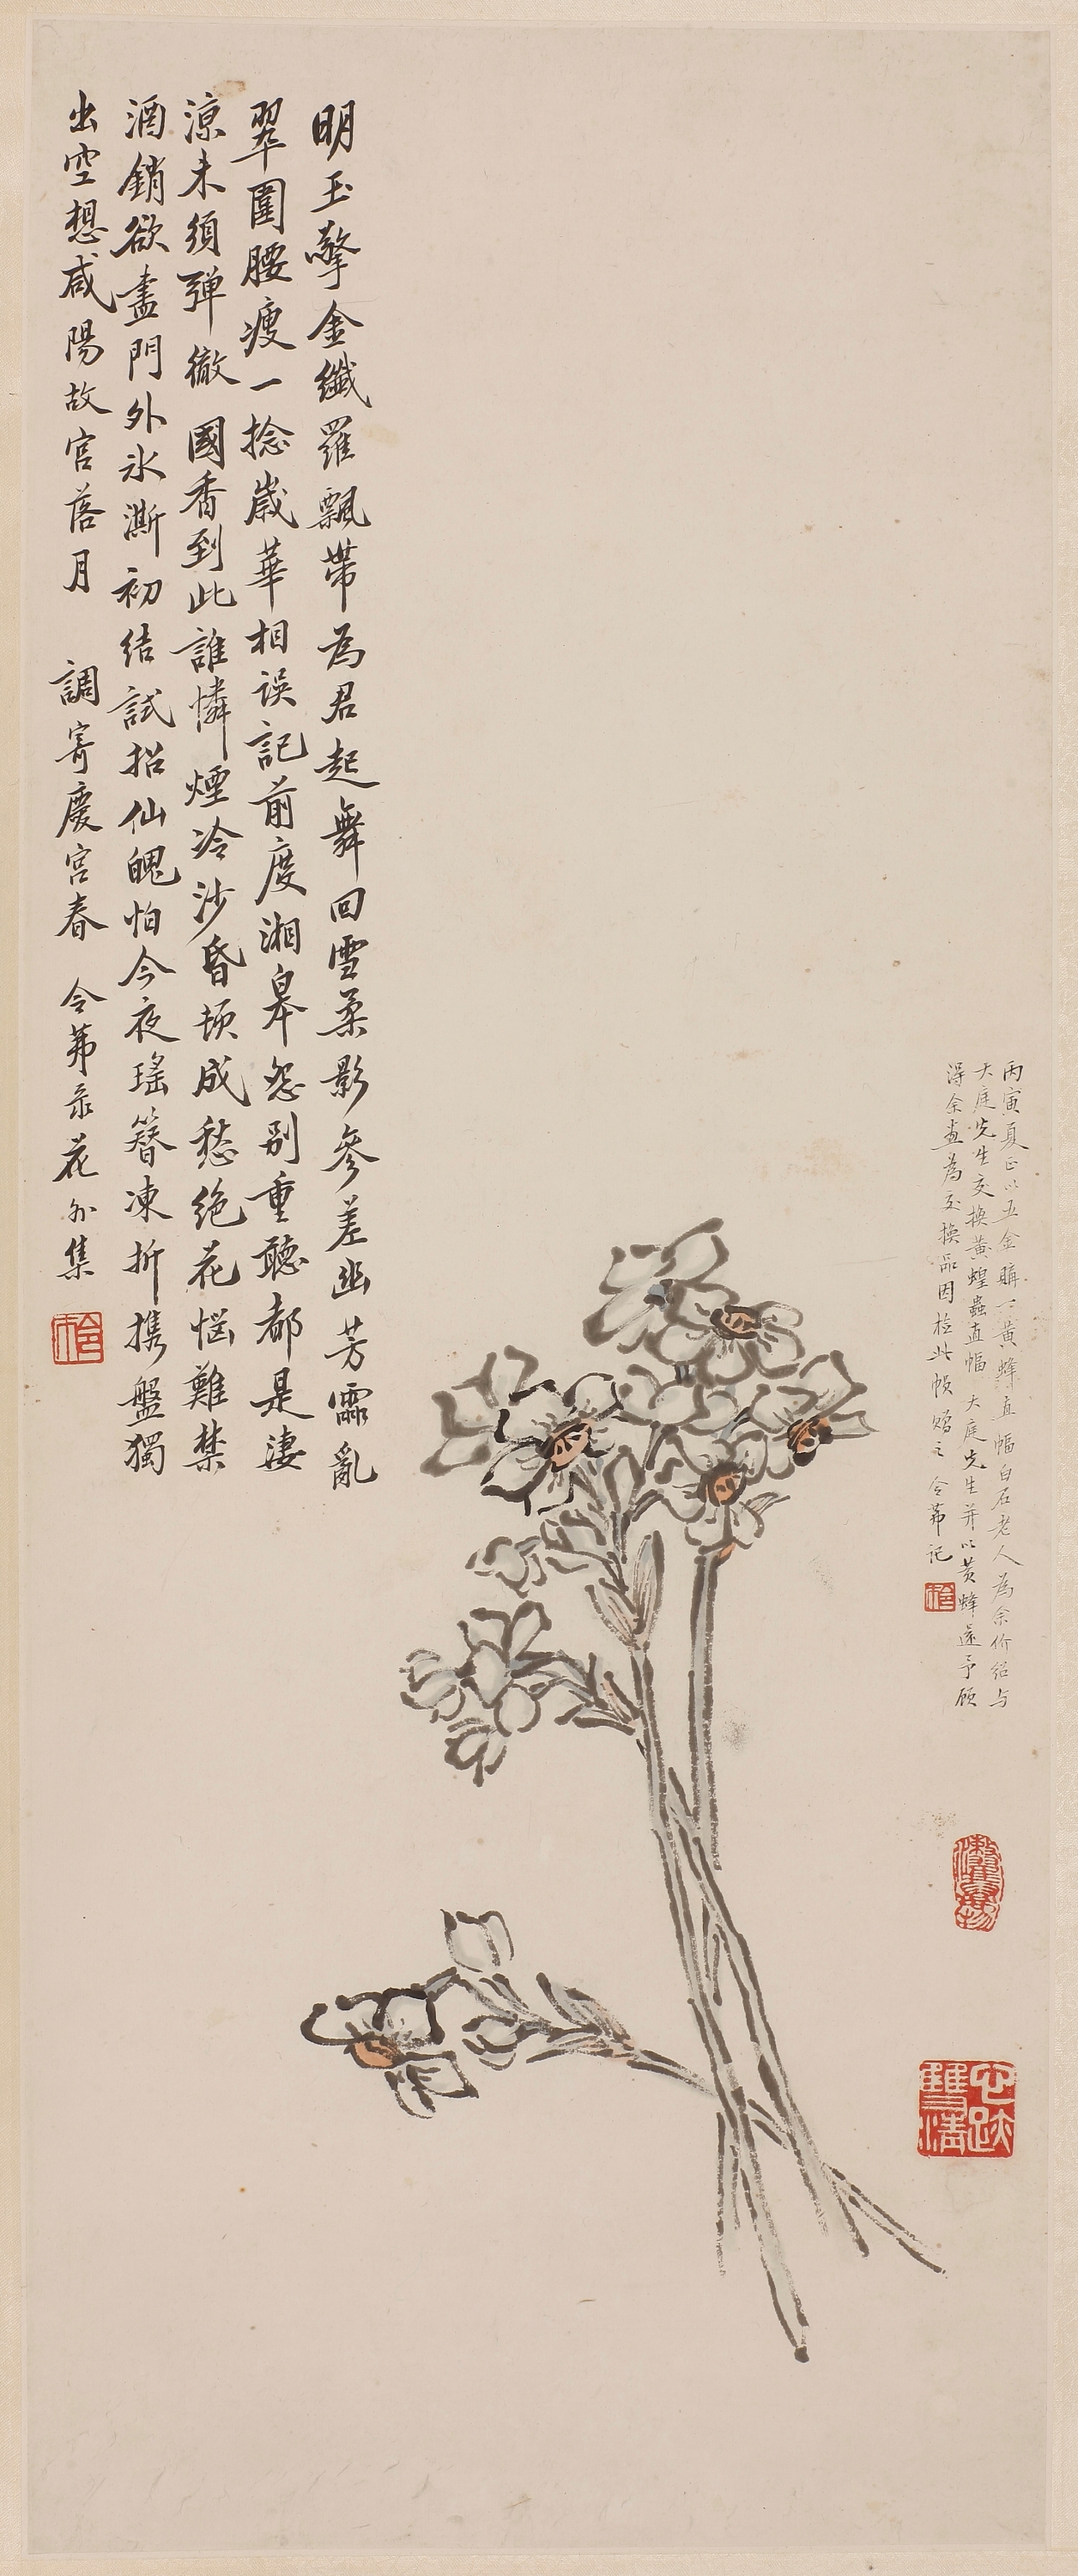 明玉擎金纖羅飄帶為君起舞回雪柔影參差幽芳零亂
翠圍腰瘦一捻歲華相誤記前度湘皋怨別重聽都是淒
涼未須彈徹國香到此誰憐煙冷沙昏頓成愁絕花惱難禁
酒銷欲盡門外冰澌初結試招仙魄怕今夜瑤簪凍折攜盤獨
出空想咸陽故宮落月 調寄慶宮春 令茀录花外集
丙寅夏正以五金購一黃蜂直幅白石老人為余价紹与
大庭先生交換黃蝗蟲直幅 大庭先生并以黃蜂還予願
得余畫為交換品因檢此幀贈之 令茀記
心跡雙清